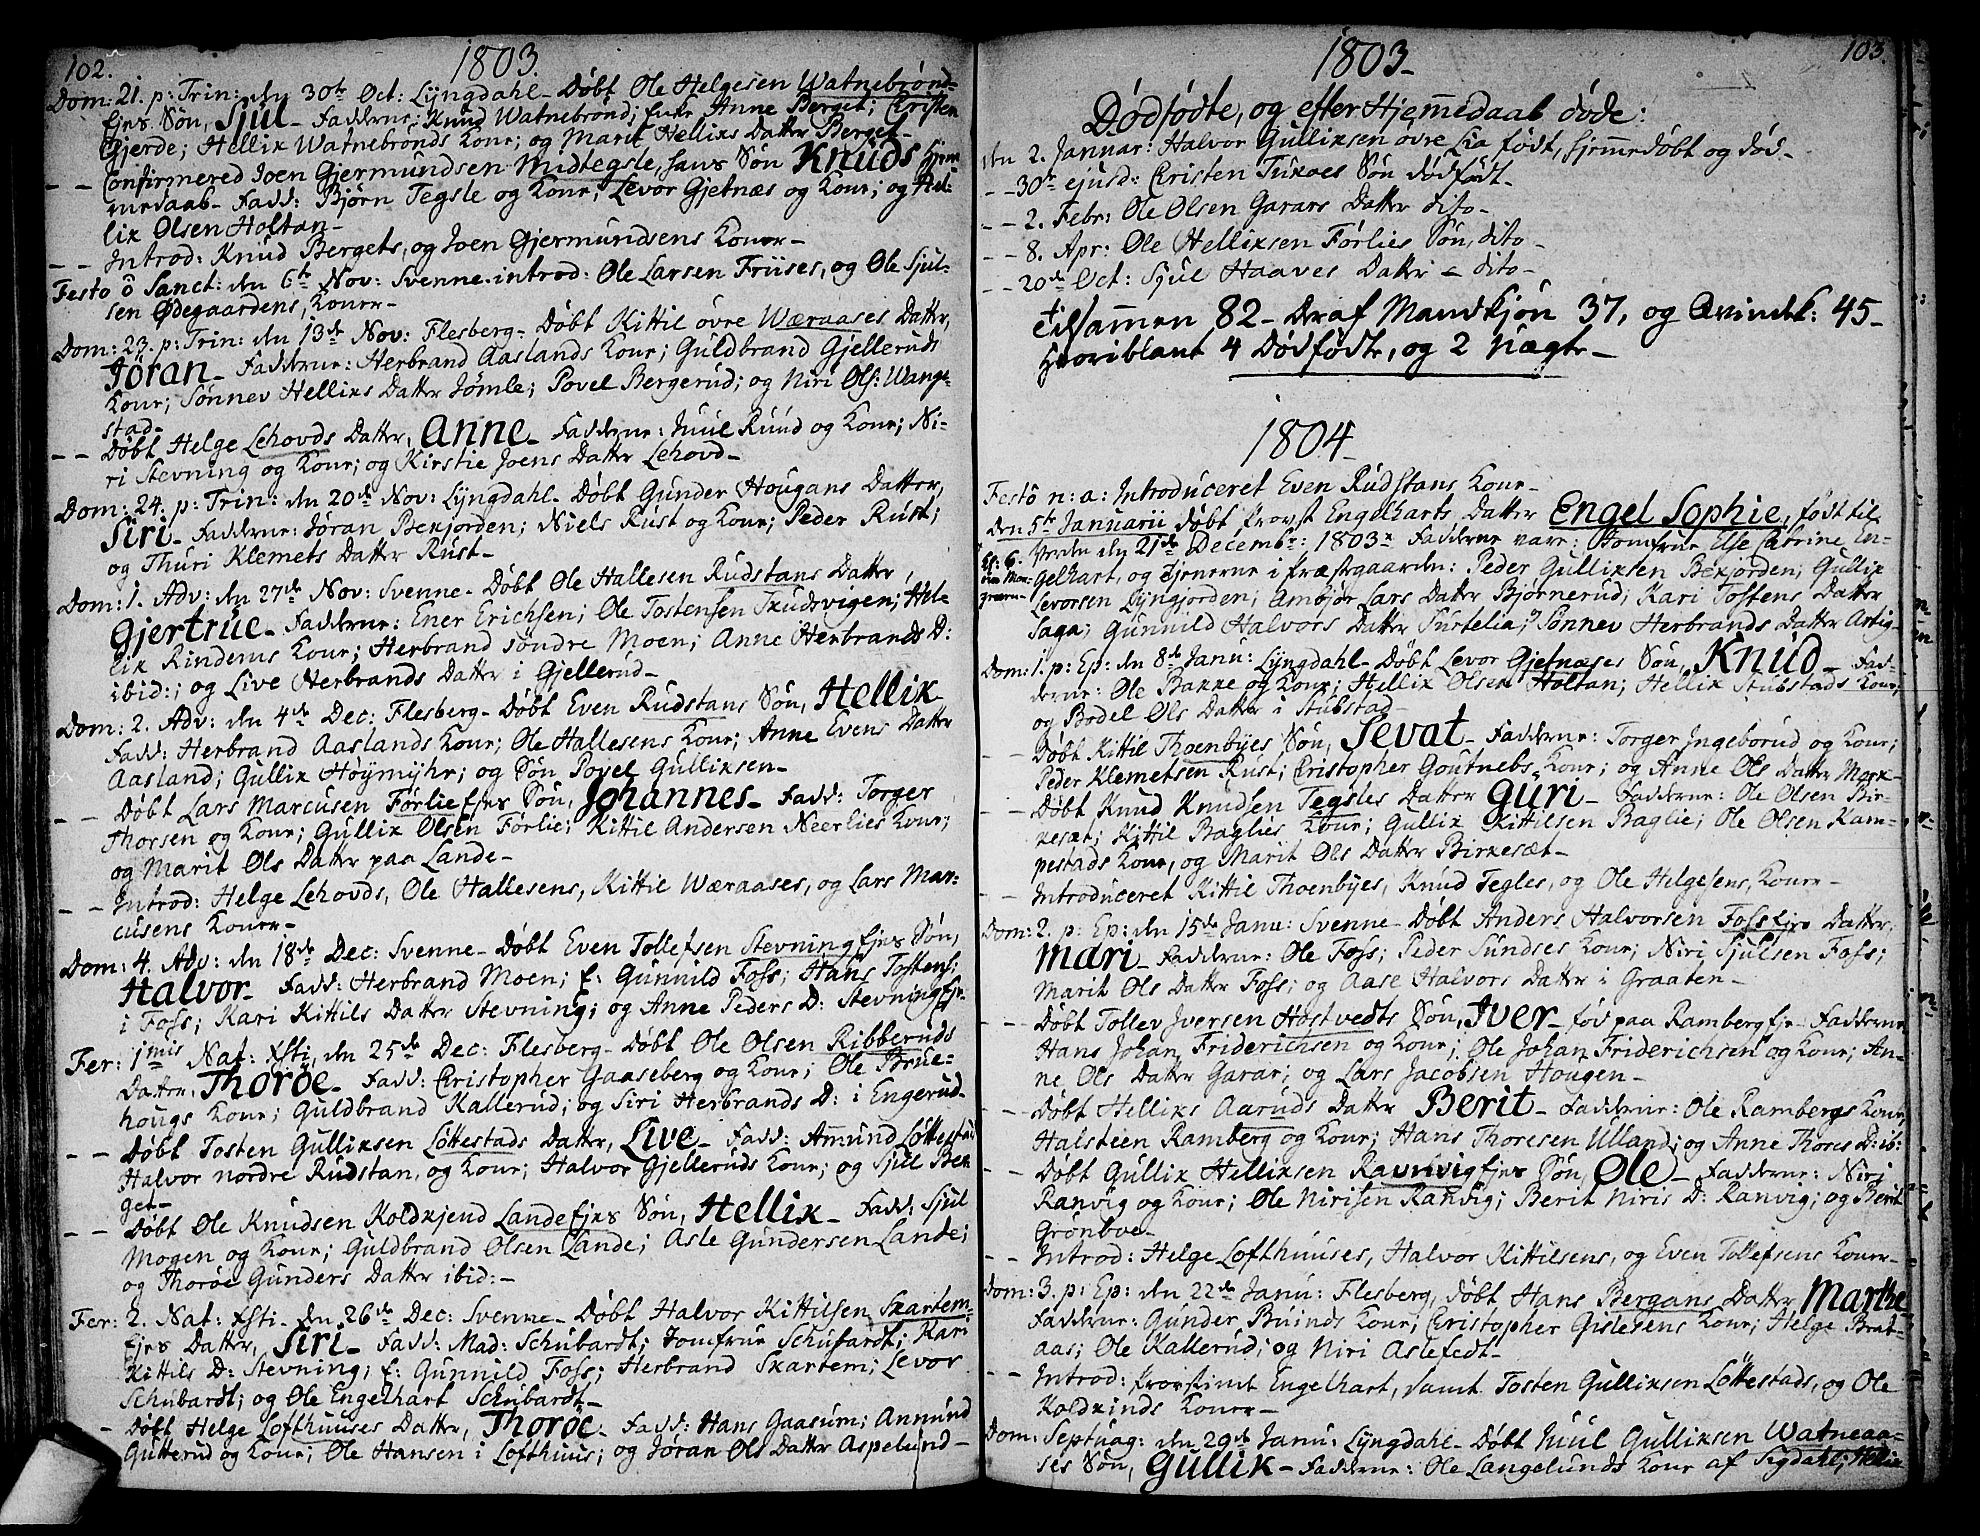 102.
1803.
Dom: 21. p: Trin: den 30te Oct: Lyngdahl - Døbt Ole Helgesen Watnebrønd-
Ejes Søn, Sjul - Fadderne: Knud Watnebrønd; Enke Anne Berget; Christen
Gjerde; Hellik Watnebrønds Kone; og Marit Helliks Datter Berget -
- - Confirmered Joen Gjermundsen Midtegsle, hans Søn Knuds Hjem-
medaab - Fadd: Bjørn Tegsle og Kone; Levor Gjetnæs og Kone; og Hel-
lik Olsen Holtan -
- - Introd: Knud Bergets, og Joen Gjermundsens Koner -
Festo ô Sanct: den 6te Nov: Svenne. introd: Ole Larsen Friises, og Ole Sjul-
sen Ødegaardens, Koner -
Dom: 23. p: Trin: den 13de Nov: Flesberg - Døbt Kittil øvre Wæraases Datter,
Jøran - Fadderne: Herbrand Aaslands Kone; Guldbrand Gjelleruds
Kone; Sønnev Helliks Datter Jømle; Povel Bergerud; og Niri Ols: Wange-
stad -
- - Døbt Helge Lehovds Datter, Anne - Fadderne: Juul Ruud og Kone; Ni-
ri Stevning og Kone; og Kirstie Joens Datter Lehovd -
Dom: 24. p: Trin: den 20de Nov: Lyngdahl - Døbt Gunder Hougans Datter,
Siri - Fadderne: Jøran Bekjorden; Niels Rust og Kone; Peder Rust;
og Thuri Klemets Datter Rust -
Dom: 1. Adv: den 27de Nov: Svenne - Døbt Ole Hallesen Rudstans Datter,
Gjertrue - Fadderne: Ener Erichsen; Ole Tostensen Skudsvigen; Hel-
lik Rinderns Kone; Herbrand søndre Moen; Anne Herbrands D:
ibid:; og Live Herbrands Datter i Gjellerud -
Dom: 2. Adv: den 4de Dec: Flesberg - Døbt Even Rudstans Søn, Hellik
Fadd: Herbrand Aaslands Kone; Ole Hallesens Kone; Anne Evens Datter
Aasland; Gullik Høymyhr; og Søn Povel Gulliksen -
- - Døbt Lars Marcusen Førlie Ejes Søn, Johannes - Fadd: Torger
Thorsen og Kone; Gullik Olsen Førlie; Kittil Andersen Neerlies Kone;
og Marit Ols Datter paa Lande -
- - Introd: Helge Lehovds, Ole Hallesens, Kittil Wæraases, og Lars Mar-
cusens Koner -
Dom: 4. Adv: den 18de Dec: Svenne - Døbt Even Tollefsen Stevning Ejes Søn,
Halvor - Fadd: Herbrand Moen; E: Gunnild Foss; Hans Tostens:
i Foss; Kari Kittils Datter Stevning; og Anne Peders D: Stevning Eje -
Fer: 1mis Nat: Xsti, den 25de Dec: Flesberg - Døbt Ole Olsen Ribberuds
Datter, Thorøe - Fadd: Christopher Gaaseberg og Kone; Ole Børke-
hougs Kone; Guldbrand Kallerud; og Siri Herbrands D: i Engerud -
- - Døbt Tosten Gulliksen Løttestads Datter, Live - Fadd: Amund Løttestad
Halvor nordre Rudstan, og Kone; Halvor Gjelleruds Kone; og Sjul Ber
get -
- - Døbt Ole Knudsen Koldkjend Lande Ejes Søn, Hellik - Fadd: Sjul
Mogen og Kone; Guldbrand Olsen Lande; Asle Gundersen Lande;
og Thorøe Gunders Datter ibid: -
Fer: 2. Nat: Xsti - den 26de Dec: Svenne - Døbt Halvor Kittilsen Skartem-
Ejes Datter, Siri - Fadd: Mad: Schubardt; Jomfrue Schubardt; Kari
Kittils D: Stevning; E: Gunnild Foss; Herbrand Skartem; Levor
Schubardt; og Ole Engelhart Schubardt -
- Døbt Helge Lofthuuses Datter, Thorøe - Fadd: Hans Gaasum; Amund
Gutterud og Kone; Ole Hansen i Lofthuus; og Jøran Ols Datter Aspelund -
1803 -
103.
Dødfødte, og efter Hjemmedaab døde:
den 2. Januar: Halvor Gulliksen øvre Lia født, hjemmedøbt og død -
- - 30te ejusd: Christen Tukoes Søn dødfødt -
- - 2. Febr: Ole Olsen Garars Datter dito -
- - 8. Apr: Ole Helliksen Førlies Søn, dito -
- - 20de Oct: Sjul Haaves Datter - dito -
Tilsammen 82 - Deraf Mandkjøn 37, og Qvindk: 45 -
Hvoriblant 4 Dødfødte, og 2 Uægte -
1804 -
Festô n: a: Introduceret Even Rudstans Kone -
den 5te Januarii døbt Provst Engelharts Datter Engel Sophie, født til
Verden den 21de Decembr: 1803. Fadderne vare: Jomfrue Else Catrine En-
gelhart, og Tjenerne i Præstegaarden: Peder Gulliksen Bekjorden; Gullik
Levorsen Lyngjorden; Ambjør Lars Datter Bjørnerud; Kari Tostens Datter
Saga; Gunnild Halvors Datter Surtelia; Sønnev Herbrands Datter Artig-
Dom: 1. p: Ep: den 8de Janu: Lyngdahl - Døbt Levor Gjetnæses Søn, Knud - Fad-
derne: Ole Bakke og Kone; Hellik Olsen Holtan; Hellik Stubstads Kone;
og Bodel Ols Datter i Stubstad -
- Døbt Kittil Thoenbyes Søn, Sevat - Fadderne: Torger Ingeborud og Kone;
Peder Klemetsen Rust; Christopher Goutnebs Kone; og Anne Ols Datter Mørk-
- Døbt Knud Knudsen Tegsles Datter Guri - Fadderne: Ole Olsen Bir-
kesæt; Kittil Baglies Kone; Gullik Kittilsen Baglie; Ole Olsen Kam-
pestads Kone, og Marit Ols Datter Birkesæt -
- - Introduceret Kittil Thoenbyes, Knud Tegles, og Ole Helgesens, Koner -
Dom: 2. p: Ep: den 15de Janu: Svenne - Døbt Anders Halvorsen Foss Ejes Datter,
Mari - Fadderne: Ole Foss; Peder Sundses Kone; Niri Sjulsen Foss;
Marit Ols Datter Foss; og Aase Halvors Datter i Graaten -
- - Døbt Tollev Iversen Høstvedts Søn, Iver - fød paa Ramberg Eje - Fadderne
Hans Johan Friderichsen og Kone; Ole Johan Friderichsen og Kone; An-
ne Ols Datter Garar; og Lars Jacobsen Hougen -
- Døbt Helliks Aaruds Datter Berit - Fadderne: Ole Rambergs Kone,
Halsteen Ramberg og Kone; Hans Thoresen Ulland; og Anne Thores D: ib:
- Døbt Gullik Helliksen Ravnvig Ejes Søn, Ole - Fadderne: Niri
Ranvig og Kone; Ole Nirisen Ranvig; Berit Niris D: Ranvig; og Berit
Grønboe -
- - Introd: Helge Lofthuuses, Halvor Kittilsens, og Even Tollefsens Koner -
Dom: 3. p: Ep: den 22de Janu: Flesberg, døbt Hans Bergans Datter Marthe -
Fadderne: Gunder Buinds Kone; Christopher Gislesens Kone; Helge Brat-
aas; Ole Kallerud; og Niri Aslefedt -
- - Introd: Provstinde Engelhart, samt Tosten Gulliksen Løttestads, og Ole
Koldkinds Koner -
Dom: Septuag: den 29de Janu: Lyngdahl - Døbt Juul Gulliksen Watneaa-
ses Søn, Gullik - Fadderne: Ole Langelunds Kone af Sigdahl; Hellik